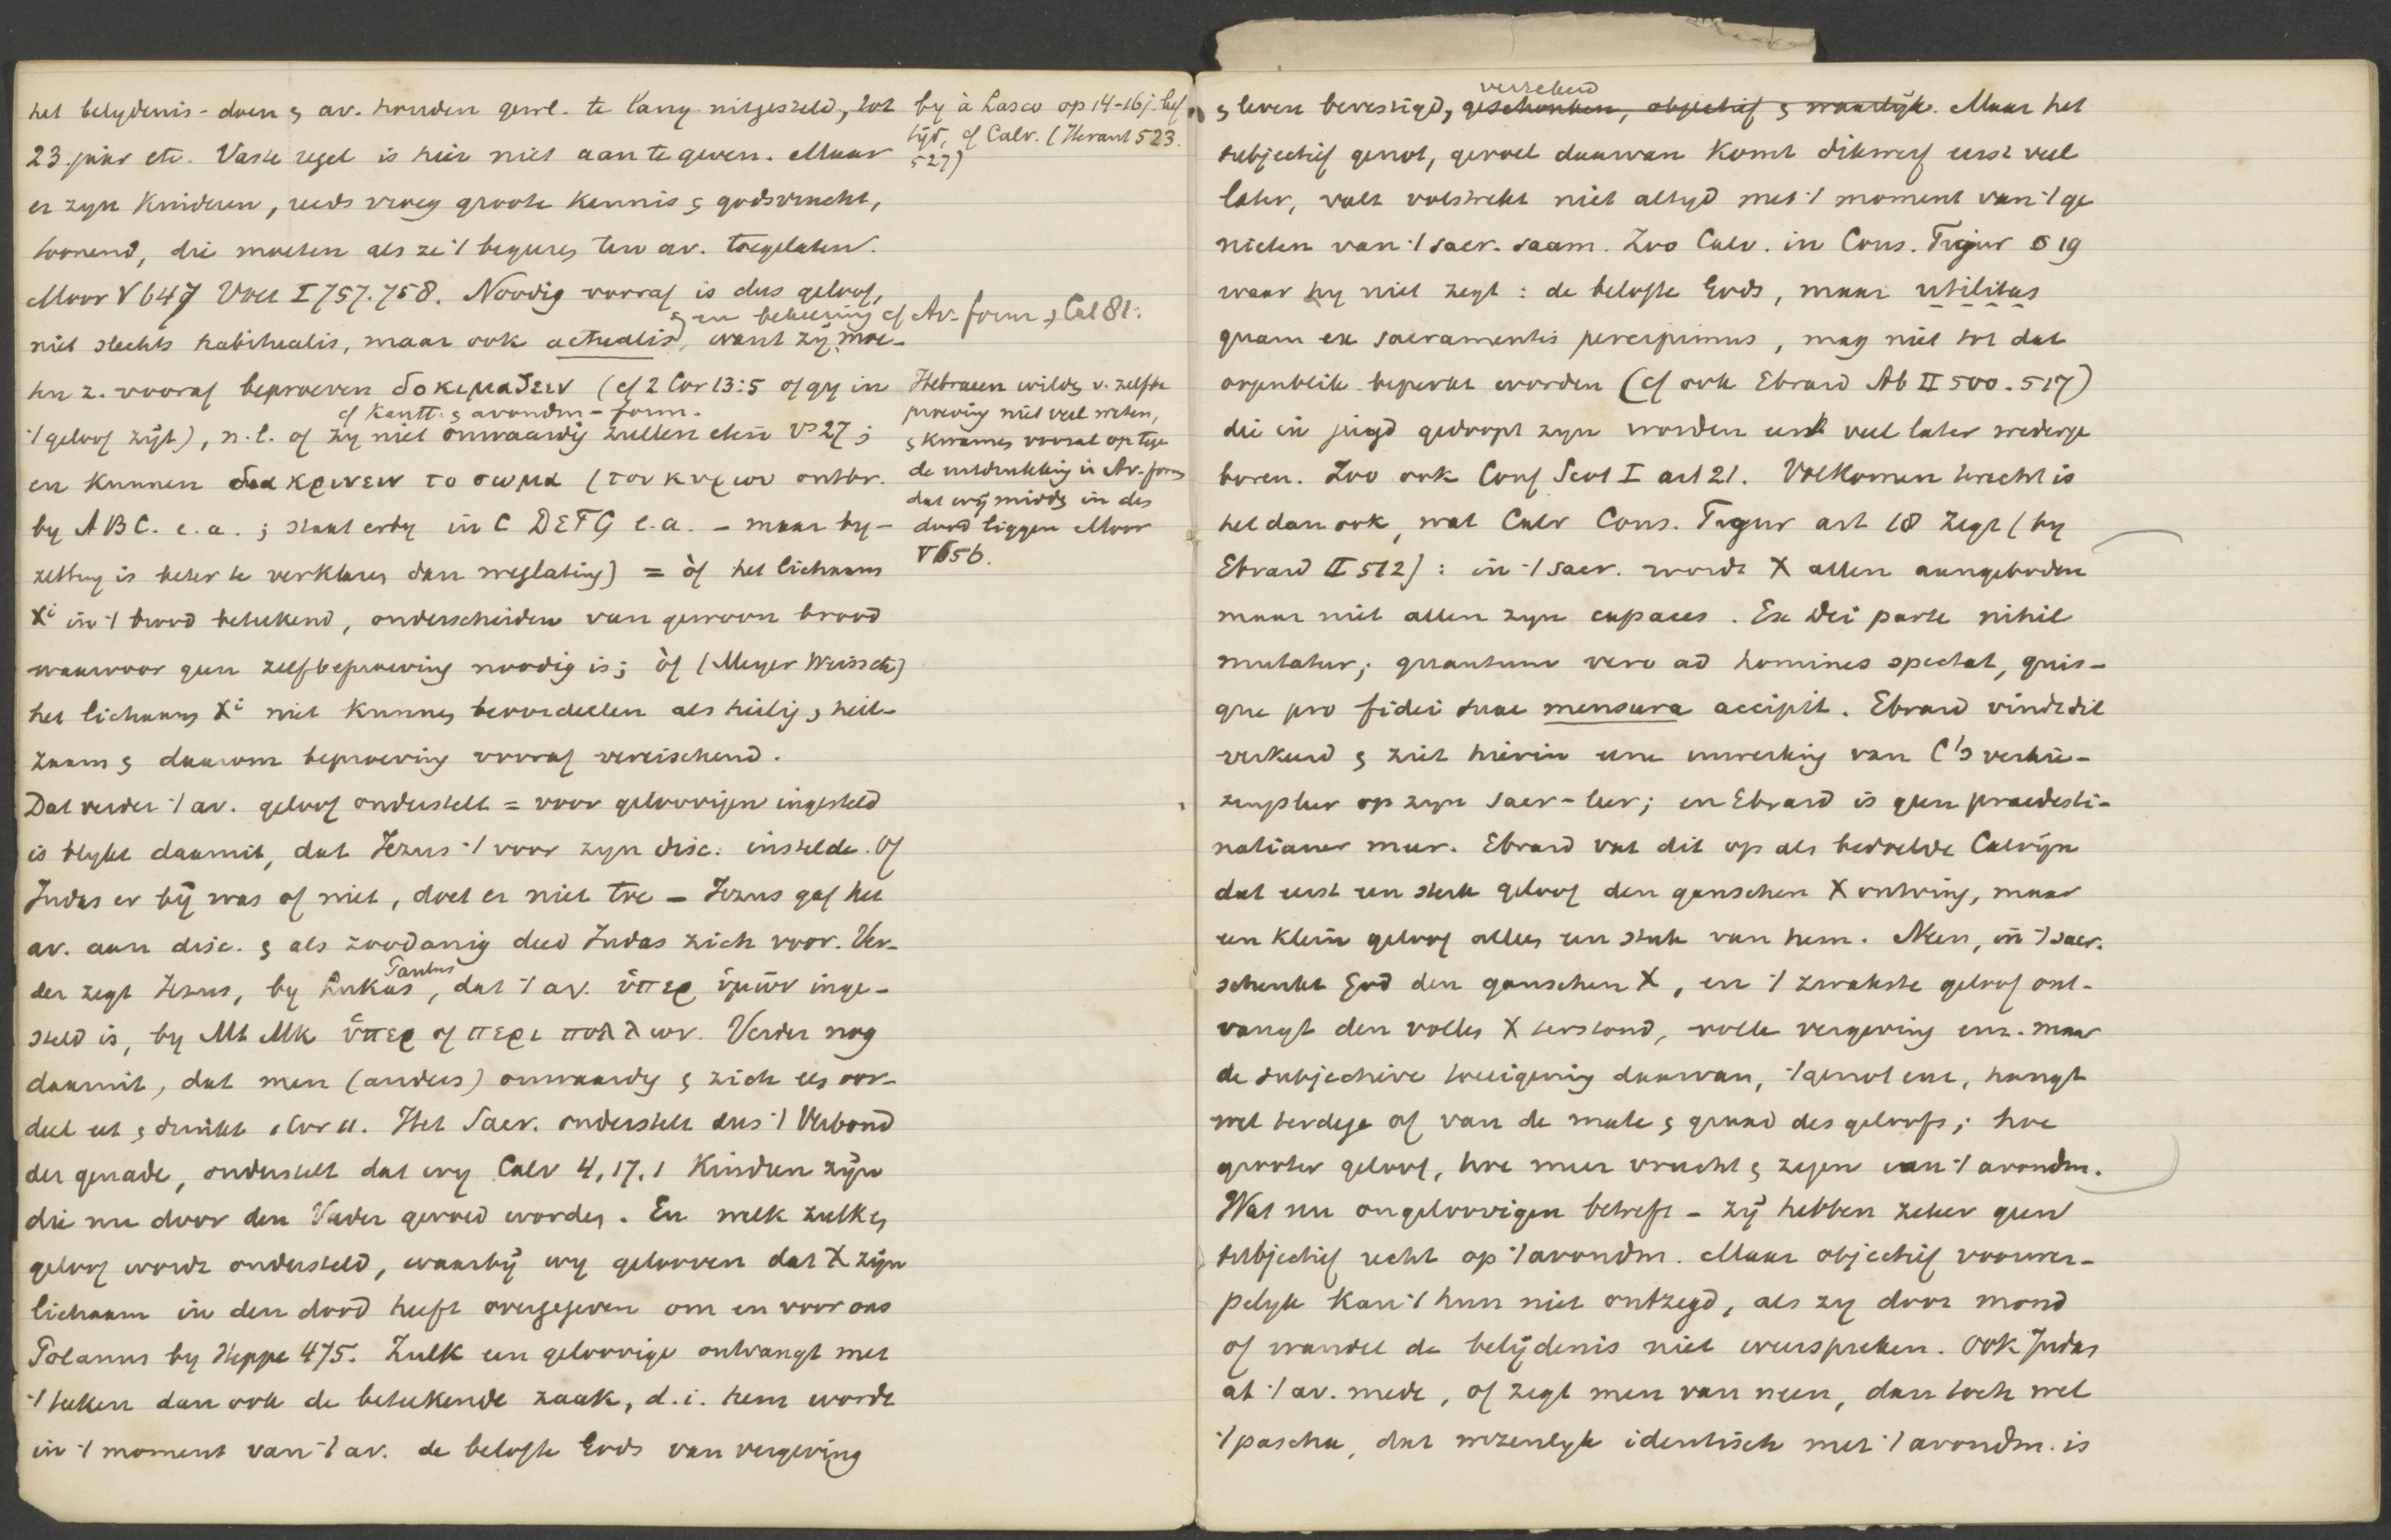 het belydenis-doen & av. houden gewl. te lang uitgesteld, tot
23.jaar etc. Vaste regel is hier niet aan te geven. Maar
er zyn Kinderen, reeds vroeg groote kennis & godsvrucht,
toonend, die moeten als ze 't begeeren ten av. toegelaten.
Moor V 647 Voet I 757.758. Noodig vooraf is dus geloof,
& en bekeering cf Av-form & Cat 81.
niet slechts habitualis, maar ook actualis, want zij moe-
ten z. vooraf beproeven δοκιμαζειν (cf 2 Cor 13:5 of gy in
cf Kantt. & avondm-form.
't geloof zijt), n.l. of zy niet onwaardig zullen eten vs 27;
en kunnen διακρινειν το σωμα (του κυριου ontbr.
by A B C. e.a.; staat erby in C D E F G e.a. - maar by-
zetting is beter te verklaren dan weglating) = òf het lichaam
Xi in 't brood beteekend, onderscheiden van gewoon brood
waarvoor geen zelfbeproeving noodig is; òf (Meyer Weiss etc)
het lichaam Xi niet kunnen beoordeelen als heilig & heil-
zaam & daarom beproeving vooraf vereischend.
Dat verder 't av. geloof onderstelt = voor geloovigen ingesteld
is blykt daaruit, dat Jezus 't voor zyn disc. instelde. Of
Judas er bij was of niet, doet er niet toe - Jezus gaf het
av. aan disc. & als zoodanig deed Judas zich voor. Ver-
der zegt Jezus, by Lukas, Paulus, dat 't av. ὑπερ ὑμῶν inge-
steld is, by Mt Mk ὑπερ of περι πολλων. Verder nog
daaruit, dat men (anders) onwaardig & zich een oor-
deel eet & drinkt 1 Cor 11. Het Sacr. onderstelt dus 't Verbond
der genade, onderstelt dat wy Calv 4,17,1 Kinderen zijn
die nu door den Vader gevoed worden. En welk zulk een
geloof wordt ondersteld, waarbij wy gelooven dat X zijn
lichaam in den dood heeft overgegeven om en voor ons
Polanus by Heppe 475. Zulk een geloovige ontvangt met
't teeken dan ook de beteekende zaak, d.i. hem wordt
in 't moment van 't av. de belofte Gods van vergeving
by à Lasco op 14-16j. leef
tijd, cf Calv. (Heraut 523.
527)
Hebraeen wilden v. zelfbe
proeving niet veel weten,
& kwamen vooral op tege
de uitdrukking in Av-form
dat wij midden in den
dood liggen Moor
V 656.
verzekerd
& leven bevestigd, geschonken, objectief & waarlijk. Maar het
subjectief genot, gevoel daarvan komt dikwerf eerst veel
later, valt volstrekt niet altyd met 't moment van 't ge
nieten van 't sacr. saam. Zoo Calv. in Cons. Tigur § 19
waar hy niet zegt: de belofte Gods, maar utilitas
quam ex sacramentis percipimus, mag niet tot dat
oogenblik beperkt worden (cf ook Ebrard Ab II 500.517)
die in jeugd gedoopt zyn worden eerst veel later wederge
boren. Zoo ook Conf Scot I art 21. Volkomen terecht is
het dan ook, wat Calv Cons. Tigur art 18 zegt (by
Ebrard II 512): in 't sacr. wordt X allen aangeboden
maar niet allen zyn capaces. Ex Dei parte nihil
mutatur; quantum vero ad homines spectat, quis-
que pro fidei suae mensura accipit. Ebrard vindt dit
verkeerd & ziet hierin eene inwerking van C's verkie-
zingsleer op zyn sacr-leer; en Ebrard is geen praedesti-
natianer meer. Ebrard vat dit op als bedoelde Calvijn
dat eerst een sterk geloof den ganschen X ontving, maar
een klein geloof alleen een stuk van hem. Neen, in 't sacr.
schenkt God den ganschen X, en 't zwakste geloof ont-
vangt den vollen X terstond, volle vergeving enz. maar
de subjectieve toeeigening daarvan, 't genot enz, hangt
wel terdege af van de mate & graad des geloofs; hoe
grooter geloof, hoe meer vrucht & zegen van 't avondm.
Wat nu ongeloovigen betreft - zij hebben zeker geen
subjectief recht op 't avondm. Maar objectief voorwer-
pelyk kan 't hun niet ontzegd, als zy door mond
of wandel de belijdenis niet weerspreken. Ook Judas
at 't av. mede, of zegt men van neen, dan toch wel
't pascha, dat wezenlyk identisch met 't avondm. is